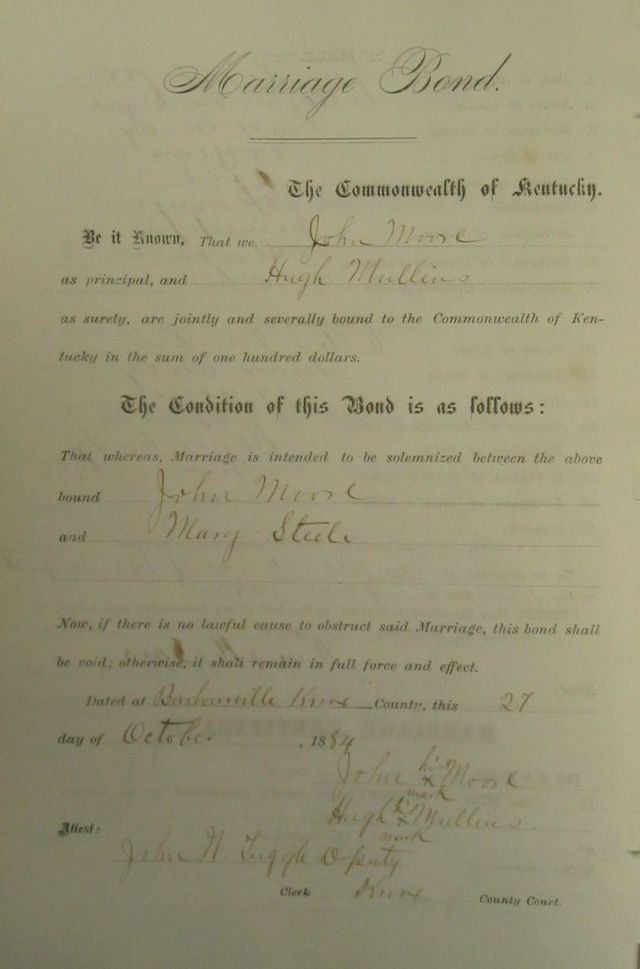 Marriage Bond.
The Commonwealth of Kentucky.
Be it Known, That we, John Moore
as principal, and Hugh Mullins
as surety, are jointly and severally bound to the Commonwealth of Ken-
tucky in the sum of one hundred dollars.
The Condition of this Bond is as follows:
That whereas, Marriage is intended to be solemnized between the above
bound John Moore
and Mary Steele
Now, if there is no lawful cause to obstruct said Marriage, this bond shall
be void; otherwise, it shall remain in full force and effect.
Dated at Barbourville Knox County, this 27
day of October, 1884
John his x mark Moore
Hugh his x mark Mullins
Attest:
John H Tuggle Deputy
Clerk Knox County Court.